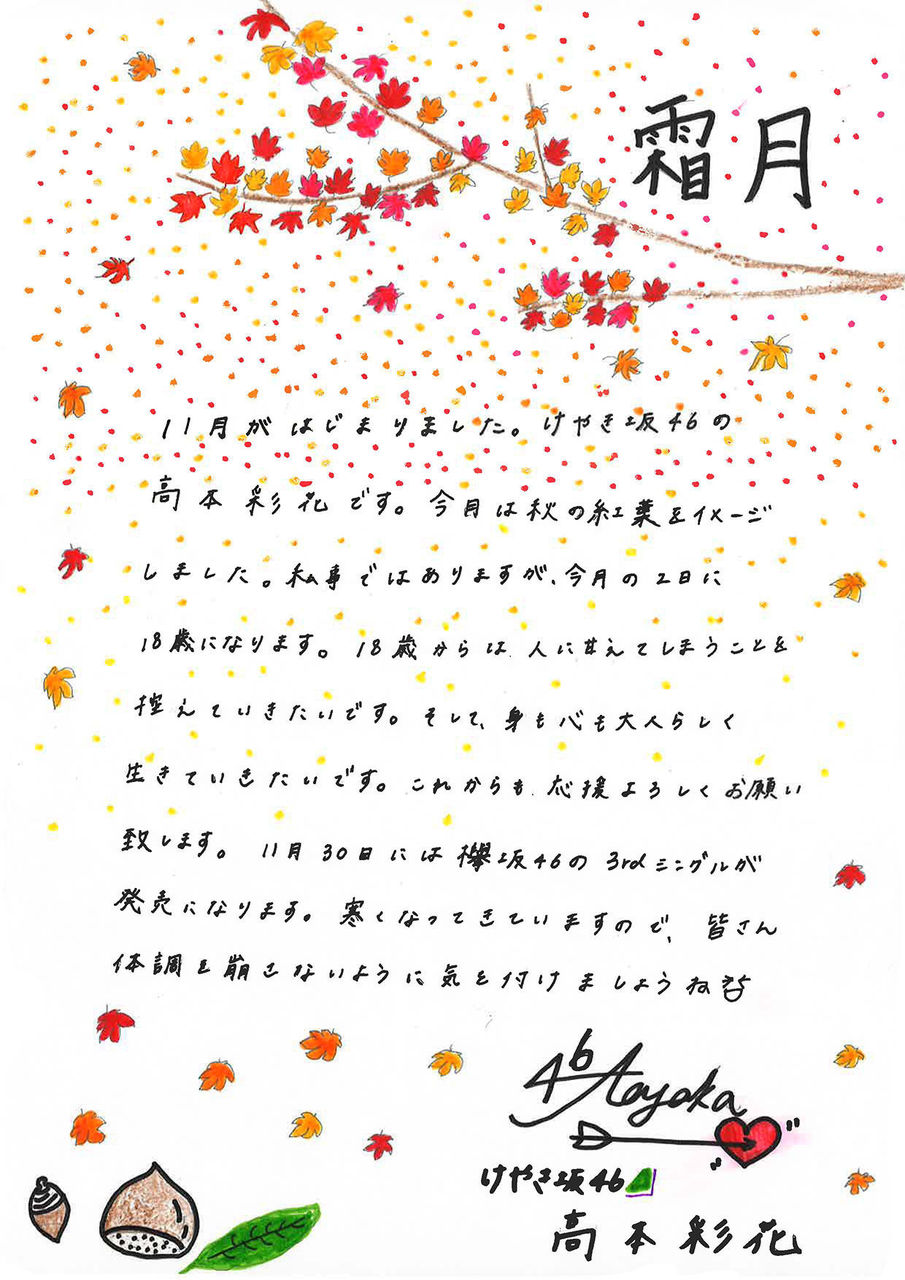 霜月
11月がはじまりました。けやき坂46の
高本彩花です。今月は秋の紅葉をイメージ
しました。私事ではありますが、今月の2日に
18歳になります。18歳からは、人に甘えてしまうことを
控えていきたいです。そして、身も心も大人らしく
生きていきたいです。これからも、応援よろしくお願い
致します。11月30日には欅坂46の3rdシングルが
発売になります。寒くなってきていますので、皆さん
体調を崩さないように気を付けましょうね
46 Ayaka
けやき坂46
高本彩花